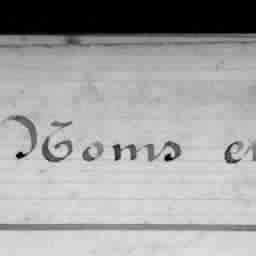 Noms e